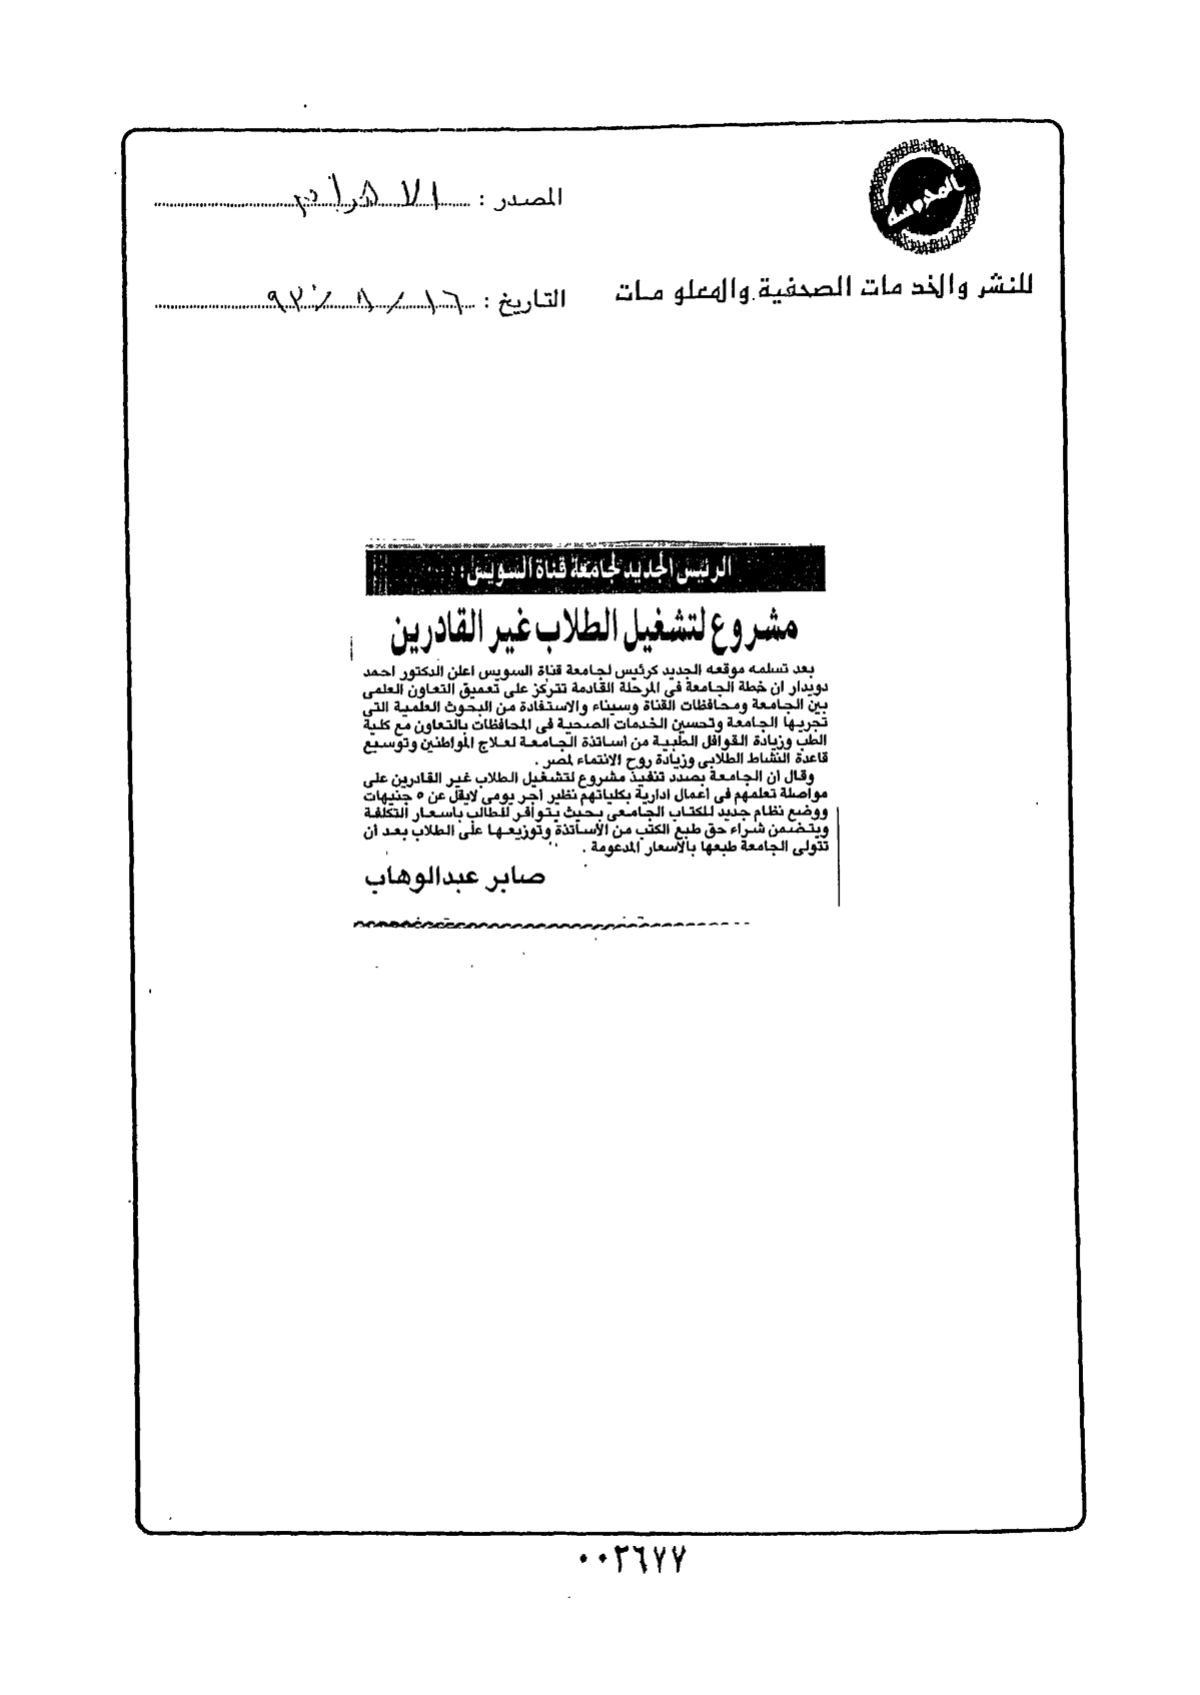 المدوسة
المصدر : الاهرام
للنشر والخدمات الصحفية والمعلومات
التاريخ : ١٦ / ٨ / ٩٣
الرئيس الجديد لجامعة قناة السويس :
مشروع لتشغيل الطلاب غير القادرين
بعد تسلمه موقعه الجديد كرئيس لجامعة قناة السويس اعلن الدكتور احمد
دويدار ان خطة الجامعة فى المرحلة القادمة تتركز على تعميق التعاون العلمى
بين الجامعة ومحافظات القناة وسيناء والاستفادة من البحوث العلمية التى
تجريها الجامعة وتحسين الخدمات الصحية فى المحافظات بالتعاون مع كلية
الطب وزيادة القوافل الطبية من أساتذة الجامعة لعلاج المواطنين وتوسيع
قاعدة النشاط الطلابى وزيادة روح الانتماء لمصر .
وقال ان الجامعة بصدد تنفيذ مشروع لتشغيل الطلاب غير القادرين على
مواصلة تعلمهم فى اعمال ادارية بكلياتهم نظير اجر يومى لايقل عن ٥ جنيهات
ووضع نظام جديد للكتاب الجامعى بحيث يتوافر للطالب باسعار التكلفة
ويتضمن شراء حق طبع الكتب من الأساتذة وتوزيعها على الطلاب بعد أن
تتولى الجامعة طبعها بالأسعار المدعومة .
صابر عبدالوهاب
٠٠٢٦٧٧